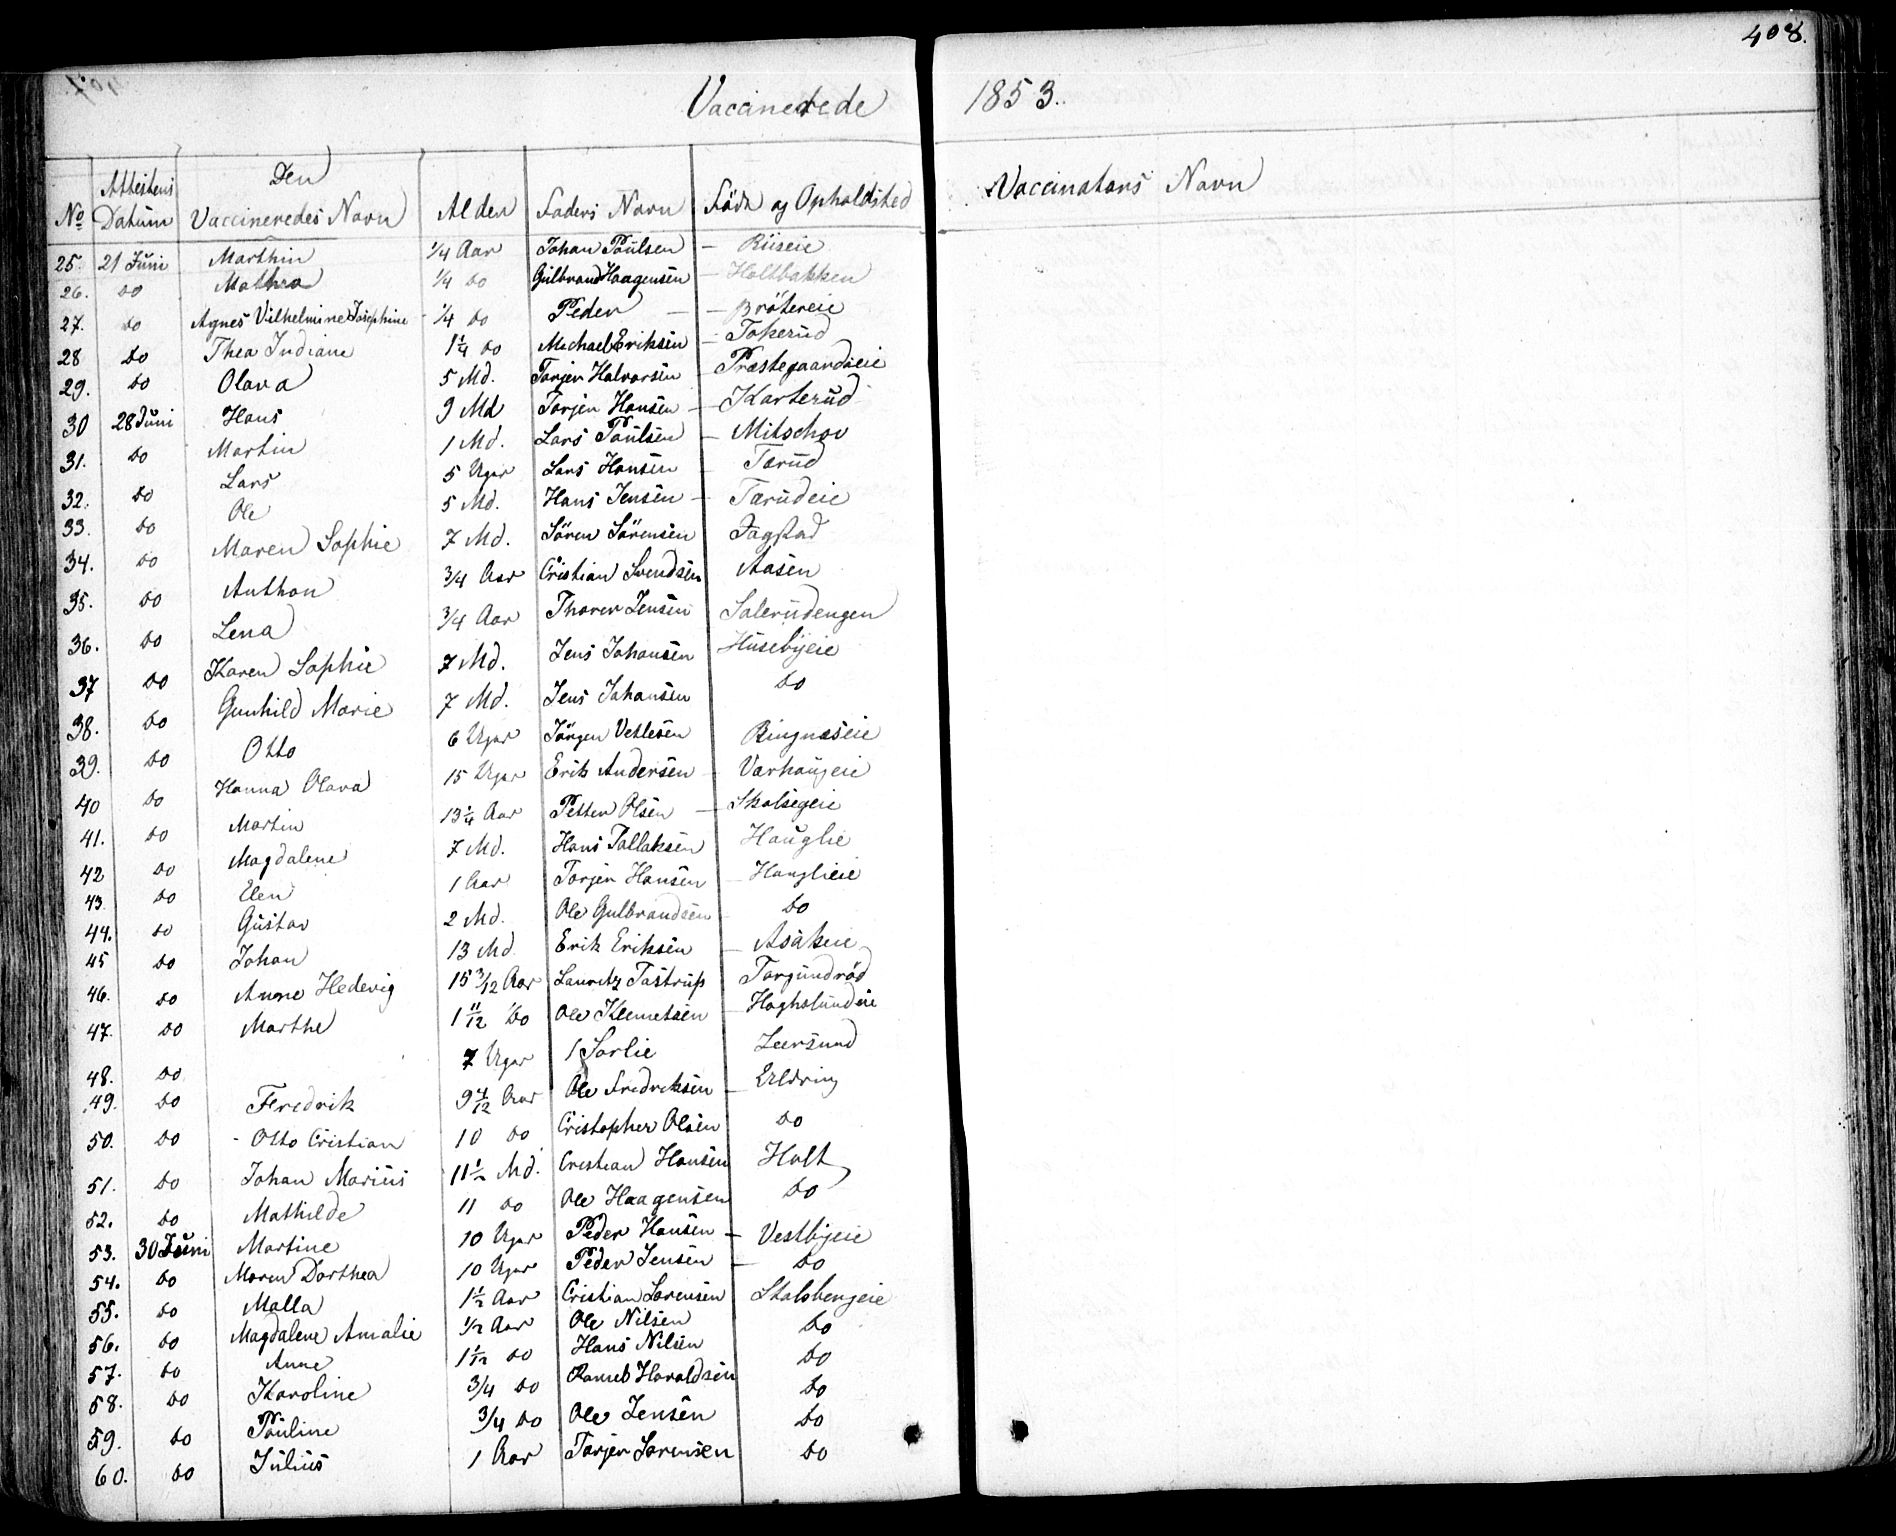 408.
Vaccinerede 1853.
No Attestens Datum Den Vaccineredes Navn Alder Faders Navn Föde og Opholdsted Vaccinatørs Navn
25. 21 Juni Marthin 1/4 Aar Johan Paülsen - Riiseie
26. Do Mathea 1/4 Do Gülbrand Haagensen - Holtbakken
27. Do Agnes Vilhelmine Josephine 1/4 Do Peder - - Brötereie
28 Do Thea Indiane 1 1/4 Do Michael Eriksen - Tokerud
29. Do Olava 5 Md. Torjer Halvorsen - Præstegaardseie
30 28 Juni Hans 9 Md Torjer Hansen - Karterud
31. Do Martin 1 Md. Lars Paülsen - Mitschov
32. Do Lars 5 Uger Lars Hansen - Tærud
33. Do Ole 5 Md. Hans Jensen - Tærudeie
34. Do Maren Sophie 7 Md. Sören Sörensen Jagstad
35. Do Anthon 3/4 Aar Cristian Svendsen Aasen
36. Do Lena 3/4 Aar Thorer Jensen Solerudengen
37 Do Karen Sophie 7 Md. Jens Johansen Husebyeie
38. Do Gunhild Marie 7 Md. Jens Johansen Do
39. Do Otto 6 Uger Jörgen Vetlesen Ringnæseie
40 Do Hanna Olava 15 Uger Erik Andersen - Varhaugeie
41. Do Martin 13 1/4 Aar Petter Olsen - Skolsegeie
42 Do Magdalene 7 Md. Hans Tollaksen Hauglie
43. Do Elen 1 Aar Torjer Hansen - Hauglieie
44. Do Gustav 2 Md. Ole Gulbrandsen - Do
45 Do Johan 13 Md Erik Eriksen - Asakeie
46. Do Anne Hedevig 15 3/12 Aar Lauritz Tostrup Torgundrød
47. Do Marthe 1 11/12 Do Ole Klemetsen - Haghslundeie
48. Do 7 Uger / Sorlie Leersund
49. Do Fredrik 9 4/12 Aar Ole Fredriksen - Erldring
50. Do - Otto Cristian 10 Do Cristopher Olsen Do
51. Do Johan Marius 11 1/2 Md. Cristian Hansen Holt
52. Do Mathilde 11 Do Ole Haagensen Do
53. 30 Juni Martine 10 Uger Peder Hansen - Vestbyeie
54. Do Maren Dorthea 10 Uger Peder Jensen - Do
55. Do Malla 1 1/2 Aar Cristian Sorensen Skalsbergeie
56. Do Magdalene Amalie 1/2 Aar Ole Nilsen Do
57. Do Anne 1 1/12 Do Hans Nilsen Do
58. Do Karoline 3/4 Do Haraldsen Do
59. Do Pauline 3/4 Do Ole Jensen Do
60. Do Julius 1 Aar Torjer Sorensen Do